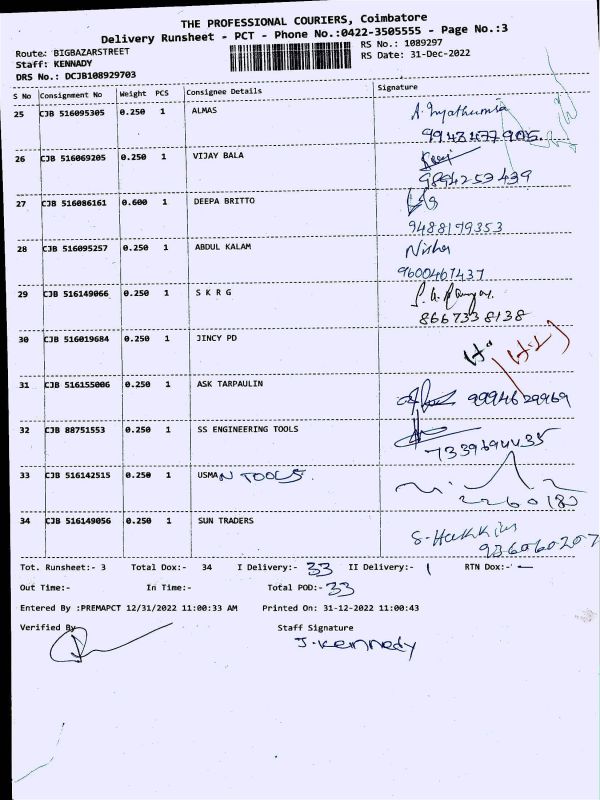 THE PROFESSIONAL COURIERS, Coimbatore
Delivery Runsheet - PCT - Phone No.:0422-3505555 - Page No.:3
Route: BIGBAZARSTREET
RS No.: 1089297
Staff: KENNADY
RS Date: 31-Dec-2022
DRS No.: DCJB108929703
S No Consignment No Weight PCS Consignee Details Signature
25 CJB 516095305 0.250 1 ALMAS
26 CJB 516069205 0.250 1 VIJAY BALA
9894253439
27 CJB 516086161 0.600 1 DEEPA BRITTO
9488179353
28 CJB 516095257 0.250 1 ABDUL KALAM Nisha
9600467437
29 CJB 516149066 0.250 1 S K R G
8667338138
30 CJB 516019684 0.250 1 JINCY PD
31 CJB 516155006 0.250 1 ASK TARPAULIN 9994629969
32 CJB 88751553 0.250 1 SS ENGINEERING TOOLS
7339694435
33 CJB 516142515 0.250 1 USMAN TOOLS
34 CJB 516149056 0.250 1 SUN TRADERS
Tot. Runsheet:- 3 Total Dox:- 34 I Delivery:- 33 II Delivery:- 1 RTN Dox:- -
Out Time:- In Time:- Total POD:- 33
Entered By :PREMAPCT 12/31/2022 11:00:33 AM Printed On: 31-12-2022 11:00:43
Verified By Staff Signature
J. Kennady